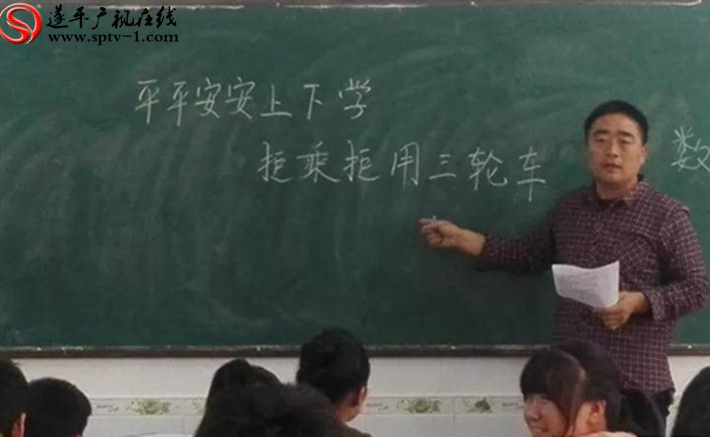 遂平广视在线
www.sptv-1.com
平平安安上下学
拒乘拒用三轮车
数